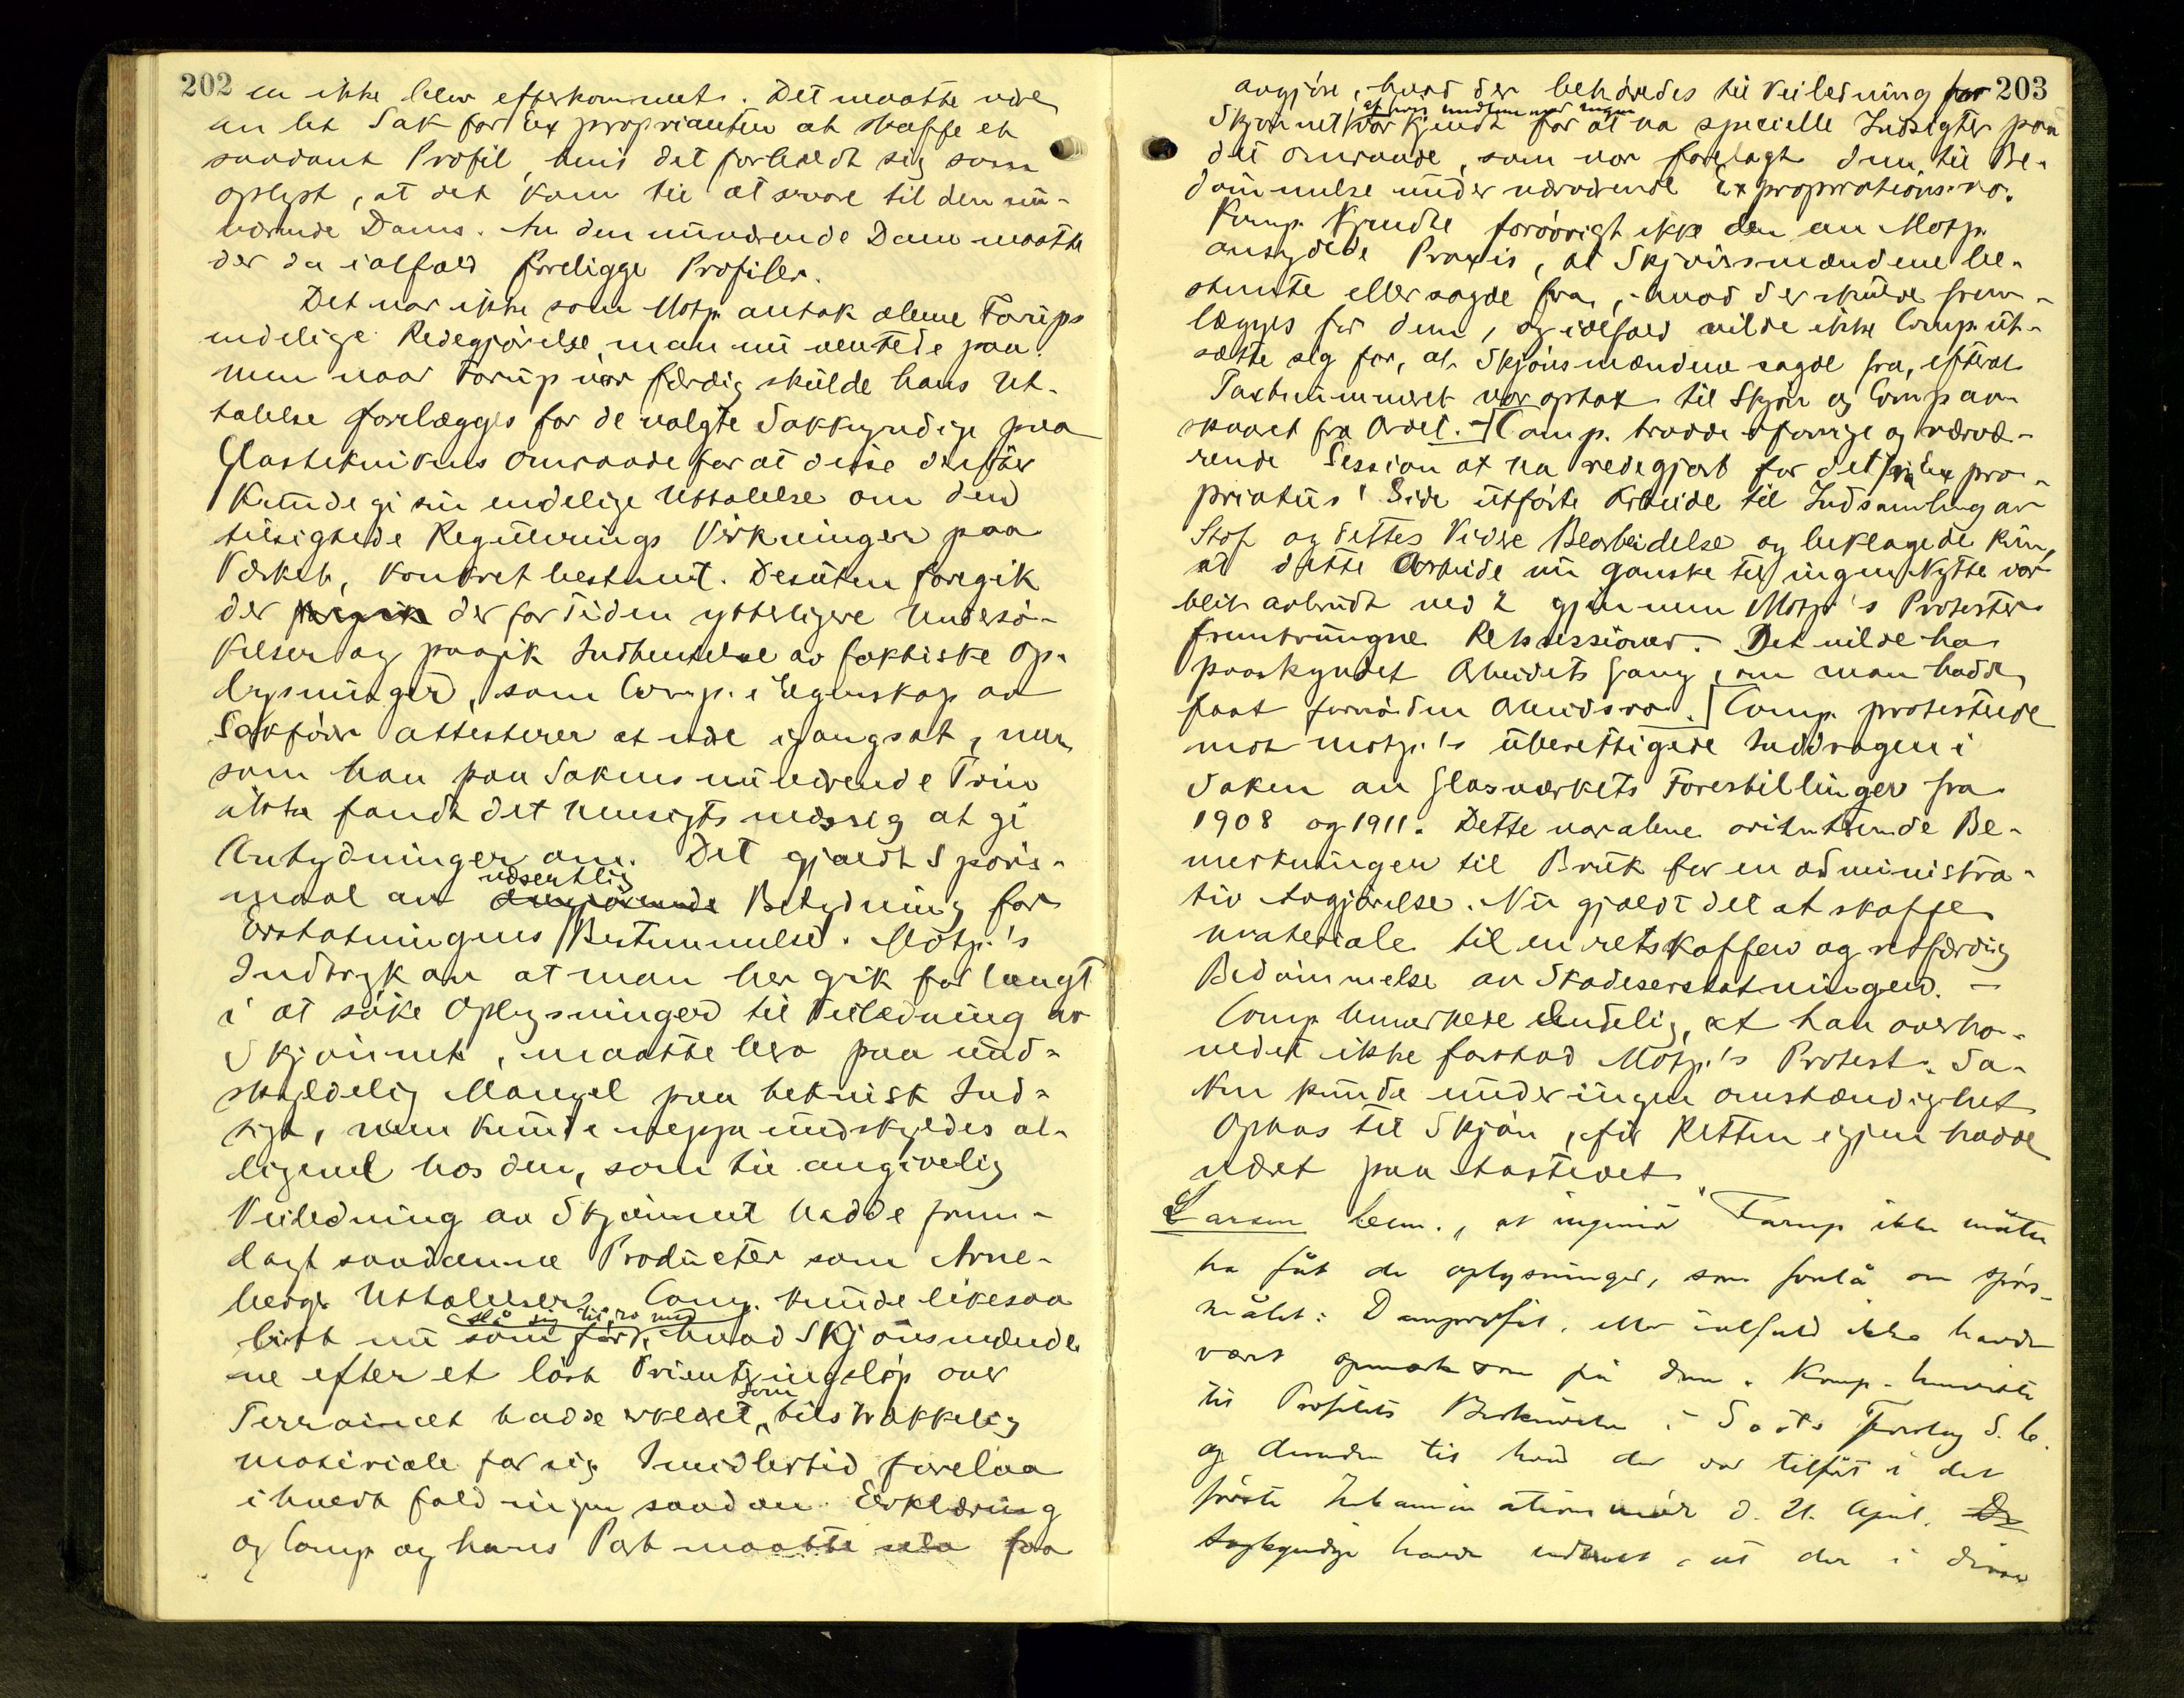 202
en ikke blev efterkommet. Det maatte være
en let Sak for Expropianten at skaffe et
saadant Profil, hvis det forholdt sig som
oplyst, at det kom til at svare til den nu-
værende Dams. Av den nuværende Dam maatte
der da ialfald foreligge Profiler.
Det var ikke som Motp. antok alene Farups
endelige Redegjørelse, man nu ventede paa.
men naar Farup var færdig skulde hans Ut-
talelse forelægges for de valgte Sakkyndige paa
Glasteknikens Omraade for at disse derefter
kunde gi sin endelige Uttalelse om den
tilsigtede Regulerings Virkninger paa
Værket, konkret bestemt. Desuten foregik
der foregik der for Tiden ytterligere Undersø-
kelser og paagik Indhentelse av faktiske Op-
lysninger, som Comp. i Egenskap av
Sakfører attesterer at være igangsat, men
som han paa Sakens nuværende Trin
ikke fandt det hensigtsmæssig at gi
Antydninger om. Det gjaldt Spørs-
maal av væsentlig avgjørende Betydning for
Erstatningens Bestemmelse. Motp.'s
Indtryk av at man her gik for langt
i at søke Oplysninger til Veiledning av
Skjønnet, maatte bero paa und-
skyldelig Mangel paa teknisk Ind-
sigt, men kunde neppe undskyldes al-
ligevel hos den, som til angivelig
Veiledning av Skjønnet hadde frem-
lagt saadanne Producter som Arne-
bergs Uttalelser. Comp. kunde likesaa
litt nu som før slå sig til ro med, hvad Skjønsmænde-
ne efter et løst Orienteringsløp over
Terrainet hadde erklæret som tilstrækkelig
materiale for sig. Imidlertid forelaa
i hvert fald ingen saadan Erklæring
og Comp. og hans Part maatte selv faa
203
avgjøre, hvad der behøvdes til Veiledning for
Skjønnet, at hvis medlemmer ingen var kjendt for at ha specielle Indsigter paa
det Omraade, som var forelagt dem til Be-
dømmelse under nærværende Expropriationssak.
Komp. kjendte forøvrigt ikke den av Motp.
antydede Praxis, at Skjønsmændene be-
stemte eller sagde fra, hvad der skulde frem-
lægges for dem, og ialfald vilde ikke Comp. ut-
sætte sig for, at Skjønsmændene sagde fra, efterat
Taxtnummeret var optat til Skjøn og Comp. av-
skaaret fra Ordet. - Comp. trodde i forrige og nærvæ-
rende Session at ha redegjort for det fra Expro-
priatus' Side utførte Arbeide til Indsamling av
Stof og dettes videre Bearbeidelse og beklagede kun,
at dette Arbeide nu ganske til ingen Nytte var
blit avbrudt ved 2 gjennem Motp.'s Protester
fremtvungne Retssessioner. Det vilde ha
paaskyndet Arbeidets Gang, om man hadde
faat fornøden Arbeidsro. Comp. protesterede
mot Motp.'s uberettigede Inddragen i
Saken av Glasværkets Forestillinger fra
1908 og 1911. Dette var alene orienterende Be-
merkninger til Bruk for en administra-
tiv Avgjørelse. Nu gjaldt det at skaffe
materiale til en retskaffen og retfærdig
Bedømmelse av Skadeserstatningen. -
Comp. bemærkede endelig, at han overho-
vedet ikke forstod Motp.'s Protest. Sa-
ken kunde under ingen omstændighet
Optas til Skjøn, før Retten igjen hadde
været paa Aastedet.
Larsen bem., at ingeniør Farup ikke måtte
ha fåt de oplysninger, som forelå om spørs-
målet: Damprofil, eller ialfald ikke havde
vært opmerksom på dem. Komp. henviste
til Profilets Beskrivelse i Saxts Forslag S. 6.
og desuden til hvad der var tilført i det
første Examinationsmøde d. 21. April. De
sagkyndige havde erklært, at der i disse